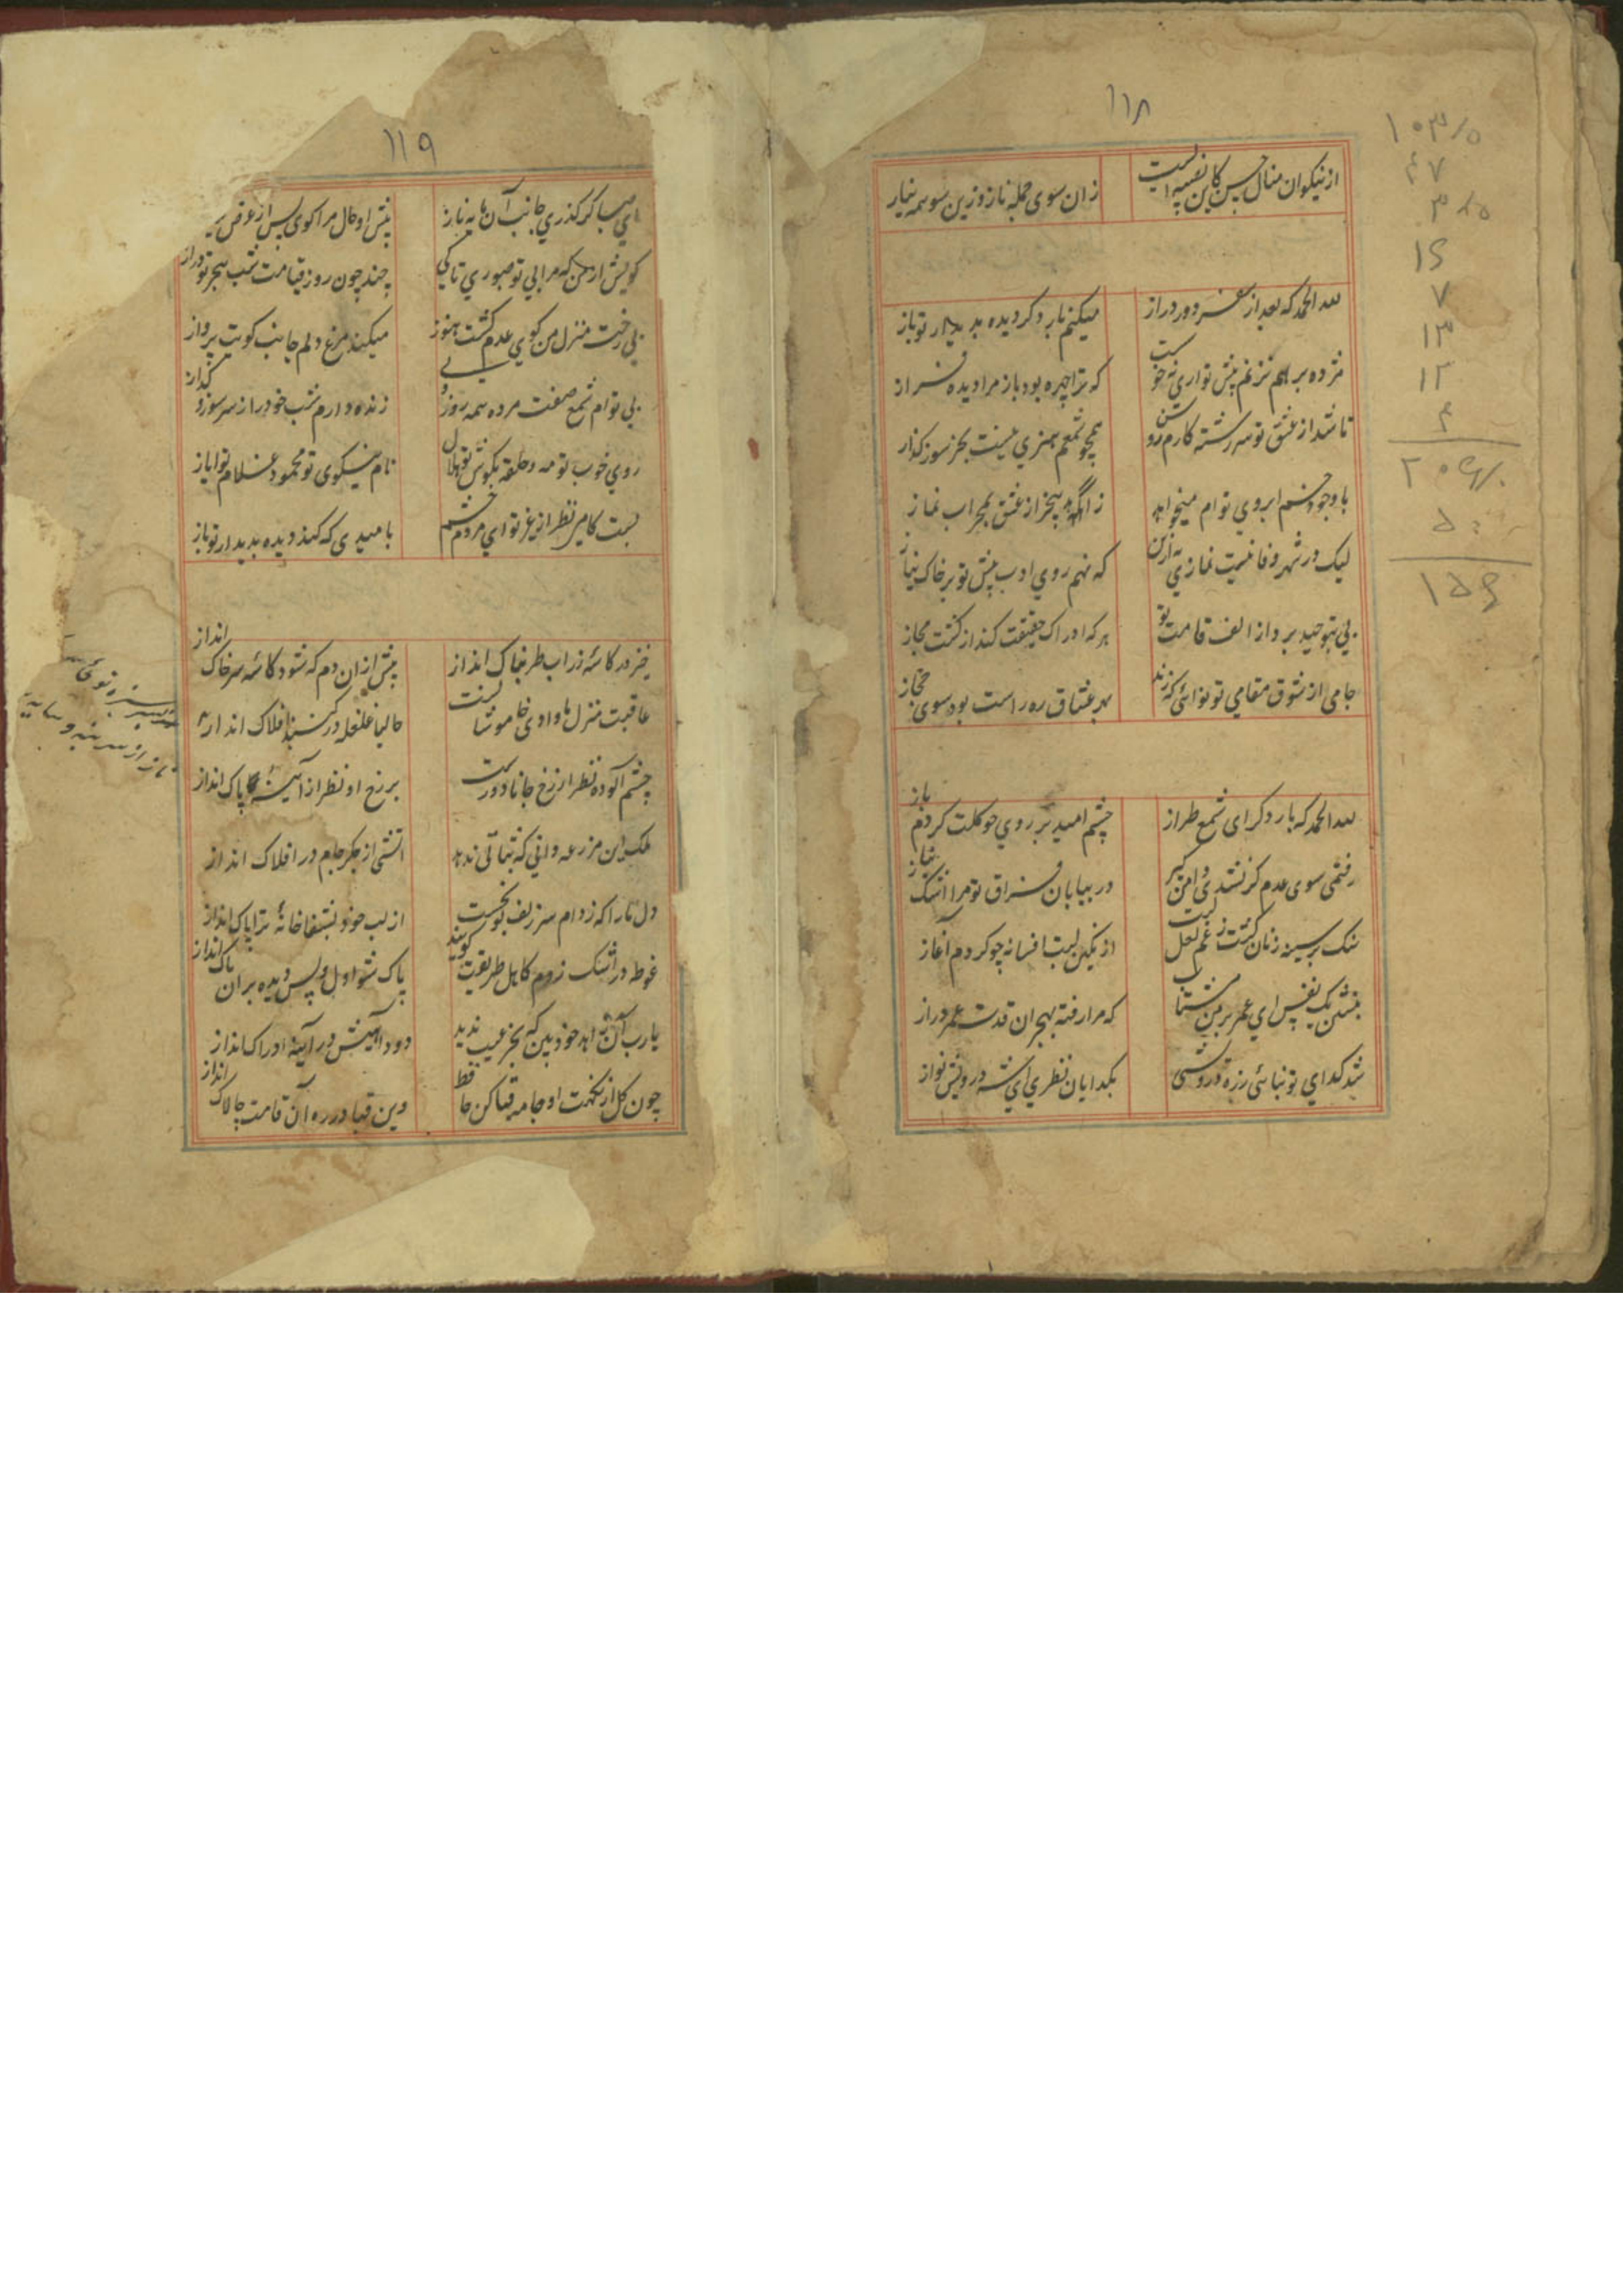 ۱۱۸
از نیکوان منال حسن کاین نفسیه است زان سوی جمله ناز و زین سو همه نیاز
لله الحمد که بعد از سفر دور دراز میکنم بار دکر دیده بدیدار تو باز
مژده بر هم نزنم پیش تو اری نه خوست که ترا چهره بود باز مرا دیده فراز
تا شد از عشق تو سر رشته کارم روشن همچو شمعم هنری نیست بجز سوز کداز
با وجود خم ابروی توام میخواهد زاهد از عشق بمحراب نماز
لیک در شهر وفا نیست نمازی به ازین که نهم روی ادب پیش تو بر خاک نیاز
پی بتوحید برد از الف قامت تو هر که ادراک حقیقت کند از کشت مجاز
جامی از شوق مقامی تو نوائی که زند بهر عشاق ره راست بود سوی حجاز
لله الحمد که بار دکر ای شمع طراز چشم امید بر روی چو کلت کردم باز
رفتمی سوی عدم کر نشدی دامن کیر در بیابان فراق تو مرا اشک نیاز
سنک بر سینه زنان کشت ز غم لعل لبت از نکین لبت افسانه چو کردم آغاز
بنشین یک نفس ای عمر بر من مشتاب که مرا رفته بهجران قدت عمر دراز
شد کدای تو بنائی زره درویشی بکدایان نظری ای شه درویش نواز
۱۰۳/۵
۴۷
۳/۵
۱۵
۷
۱۳
۱۲
۴
۱۱۹
ای صبا کر کذری جانب آن مایه ناز پیش او حال مرا کوی پس از عرض
کویش از من که مرا بی تو صبوری تا کی چند چون روز قیامت شب هجر تو دراز
بی رخت منزل من کوی عدم کشت هنوز میکند مرغ دلم جانب کویت پرواز
بی توام شمع صفت مرده همه روز ولی زنده دارم شب خود را ز سر سوز و کداز
روی خوب تو مه و حلقه بکوش تو هلال نام نیکوی تو محمود غلام تو ایاز
بست کامی نظر از غیر تو ای مردم چشم بامیدی که کند دیده بدیدار تو باز
خیز در کاسه زر اب طربناک انداز پیش از ان دم که شود کاسه سر خاک انداز
عاقبت منزل ما وادی خاموشانست حالیا غلغله در کنبد افلاک انداز
چشم آلوده نظر از رخ جانان دورست بر رخ او نظر از آینه پاک انداز
ملک این مزرعه دانی که ثباتی ندهد اتشی از جکر جام در افلاک انداز
دل ما را که ز دام سر زلف تو بخست از لب خود بشفاخانه تریاک انداز
غوطه در اشک زدم کاهل طریقت کویند پاک شو اول و پس دیده بران پاک انداز
یارب آن زاهد خودبین که بجز عیب ندید دود آهیش در آینه ادراک انداز
چون کل از نکهت او جامه قبا کن حافظ وین قبا در ره آن قامت چالاک انداز